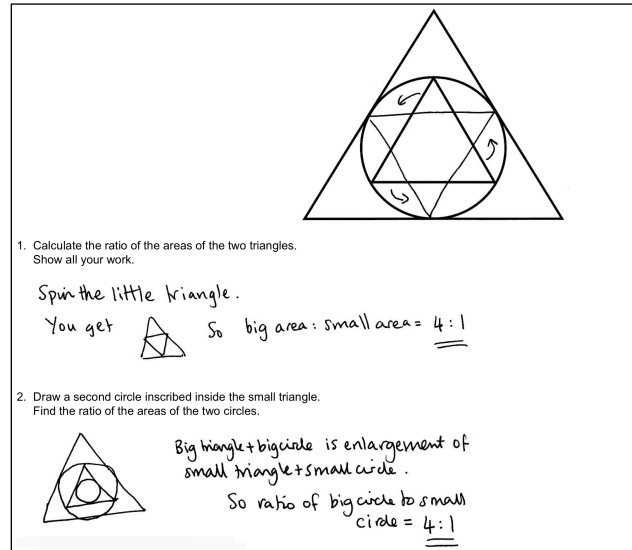 1. Calculate the ratio of the areas of the two triangles.
Show all your work.
Spin the little triangle.
You get So big area : small area = 4 : 1
2. Draw a second circle inscribed inside the small triangle.
Find the ratio of the areas of the two circles.
Big triangle + big circle is enlargement of
small triangle + small circle.
So ratio of big circle to small
circle = 4 : 1